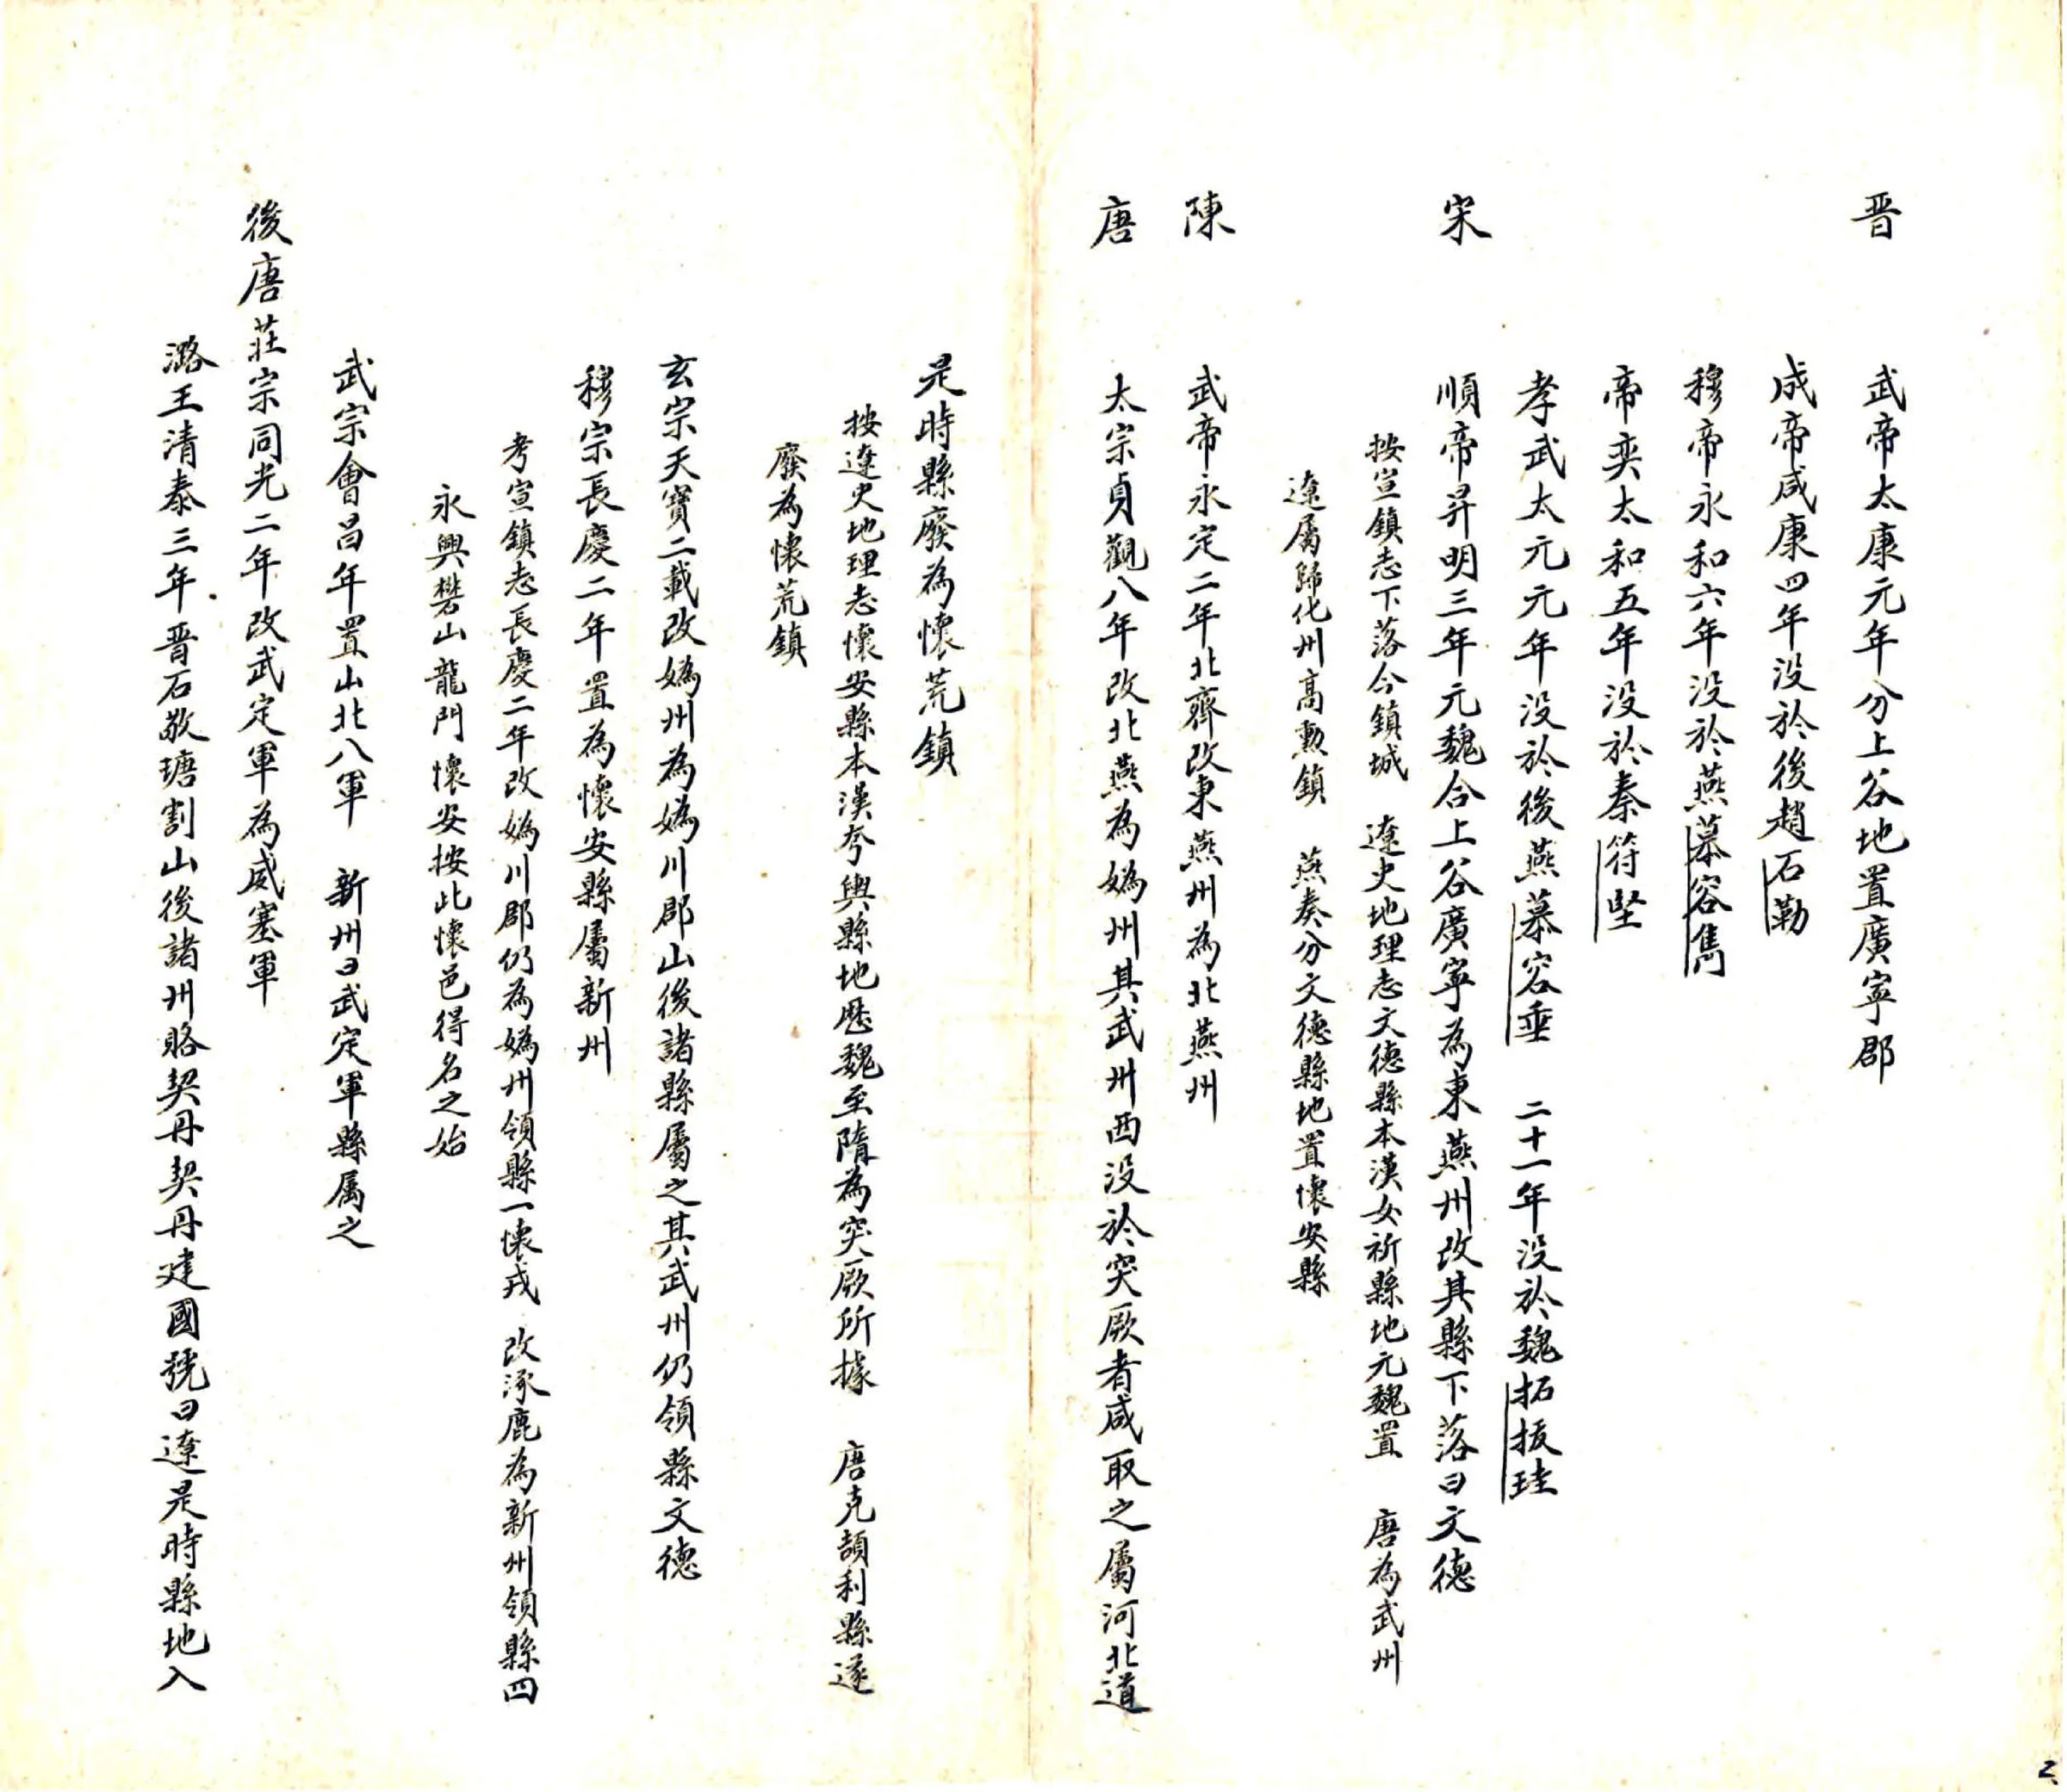 晋　武帝太康元年分上谷地置廣寧郡
成帝咸康四年没於後趙石勒
穆帝永和六年没於燕慕容雋
帝奕太和五年没於秦符堅
孝武太元元年没於後燕慕容垂　二十一年没於魏拓拔珪
宋　順帝昇明三年元魏合上谷廣寧為東燕州改其縣下落曰文德
按宣鎮志下落今鎮城　遼史地理志文德縣本漢女祈縣地元魏置　唐為武州
遼屬歸化州高勲鎮　燕奏分文德縣地置懷安縣
陳　武帝永定二年北齊改東燕州為北燕州
唐　太宗貞觀八年改北燕為媯州其武州西没於突厥者咸取之屬河北道
是時縣廢為懷荒鎮
按遼史地理志懷安縣本漢夸輿縣地歷魏至隋為突厥所據　唐克頡利縣遂
廢為懷荒鎮
玄宗天寶二載改媯州為媯川郡山後諸縣屬之其武州仍領縣文德
穆宗長慶二年置為懷安縣屬新州
考宣鎮志長慶二年改媯川郡仍為媯州領縣一懷戎　改涿鹿為新州領縣四
永興礬山龍門懷安按此懷邑得名之始
武宗會昌年置山北八軍　新州曰武定軍縣属之
後唐莊宗同光二年改武定軍為威塞軍
潞王清泰三年晋石敬瑭割山後諸州賂契丹契丹建國號曰遼是時縣地入
2